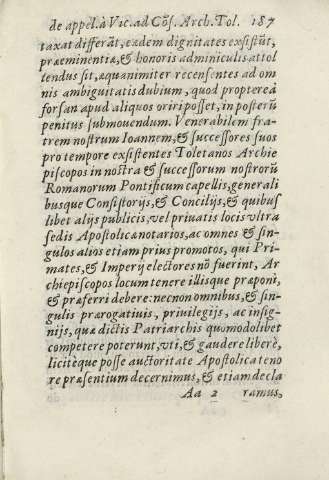 de appel. à Vic. ad Cōs. Arch. Tol. 187
taxat differāt, eædem dignitates exsistūt,
præeminentiæ, & honoris adminiculis attol
lendus sit, æquanimiter recensentes ad om
nis ambiguitatis dubium, quod propterea
forsan apud aliquos oriri posset, in posterū
penitus submouendum. Venerabilem fra-
trem nostrum Ioannem, & successores suos
pro tempore exsistentes Toletanos Archie
piscopos in nostra & successorum nostrorū
Romanorum Pontificum capellis, generali
busque Consistorijs, & Concilijs, & quibus
libet alijs publicis, vel priuatis locis vltra
sedis Apostolicæ notarios, ac omnes & sin-
gulos alios etiam prius promotos, qui Pri-
mates, & Imperij electores nō fuerint, Ar
chiepiscopos locum tenere illisque præponi,
& præferri debere: necnon omnibus, & sin-
gulis prærogatiuis, priuilegijs, ac insig-
nijs, quæ dictis Patriarchis quomodolibet
competere poterunt, vti, & gaudere liberè,
licitèque posse auctoritate Apostolica teno
re præsentium decernimus, & etiam decla
Aa 2 ramus,